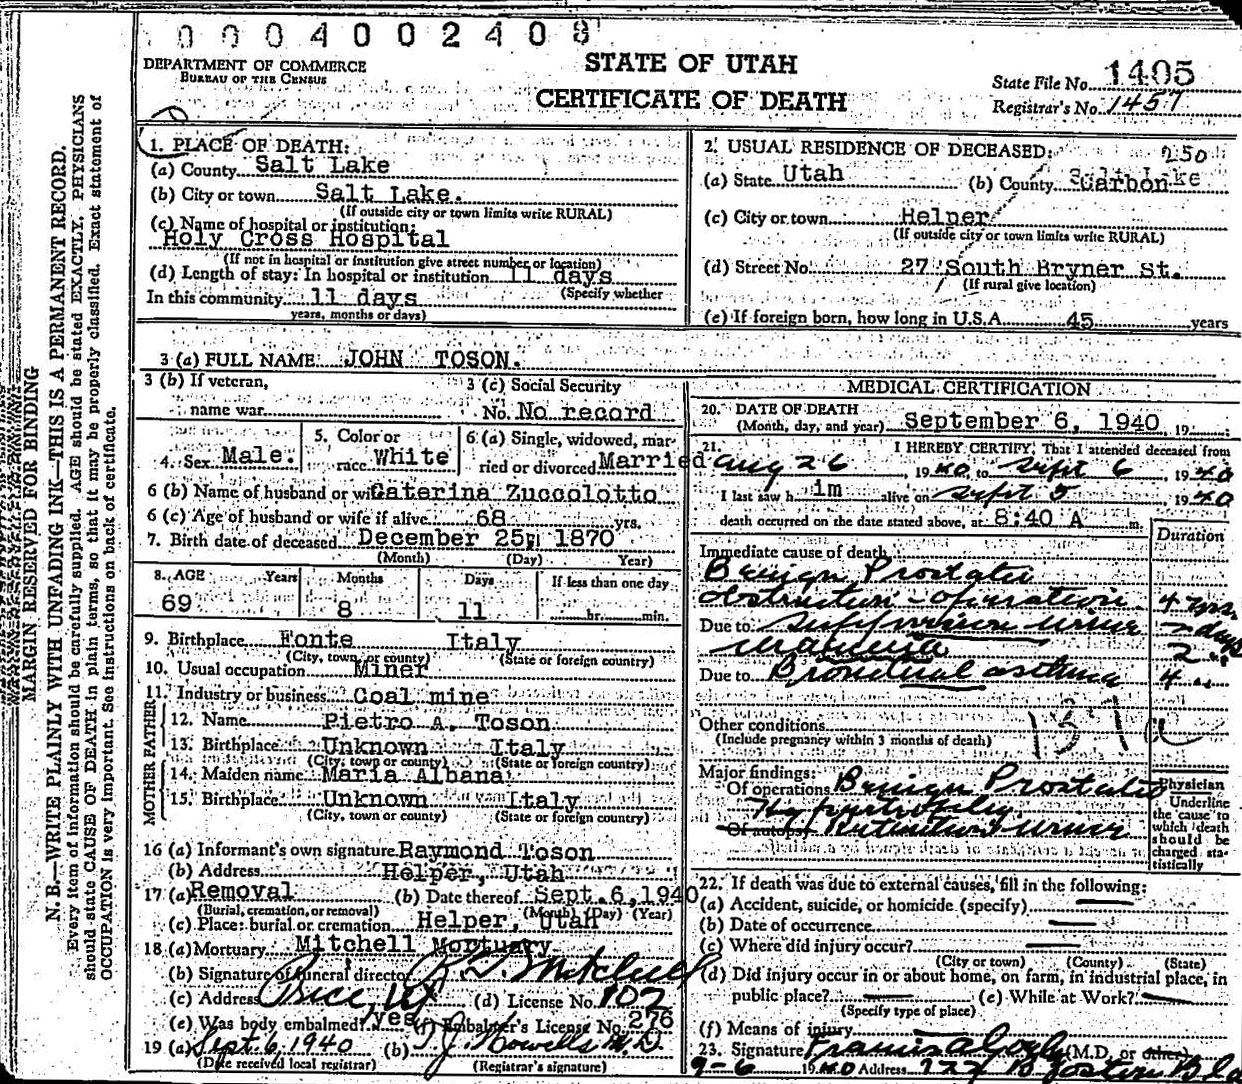 0004002408
DEPARTMENT OF COMMERCE
BUREAU OF THE CENSUS
STATE OF UTAH
CERTIFICATE OF DEATH
State File No. 1405
Registrar's No. 1457
MARGIN RESERVED FOR BINDING
N. B.—WRITE PLAINLY WITH UNFADING INK—THIS IS A PERMANENT RECORD.
Every item of information should be carefully supplied. AGE should be stated EXACTLY. PHYSICIANS
should state CAUSE OF DEATH in plain terms, so that it may be properly classified. Exact statement of
OCCUPATION is very important. See instructions on back of certificate.
1. PLACE OF DEATH:
(a) County Salt Lake
(b) City or town Salt Lake.
(If outside city or town limits write RURAL)
(c) Name of hospital or institution:
Holy Cross Hospital
(If not in hospital or institution give street number or location)
(d) Length of stay: In hospital or institution 11 days
(Specify whether
In this community 11 days
years, months or days)
2. USUAL RESIDENCE OF DECEASED: 250
(a) State Utah (b) County Carbon
(c) City or town Helper
(If outside city or town limits write RURAL)
(d) Street No. 27 South Bryner St.
(If rural give location)
(e) If foreign born, how long in U.S.A. 45 years
3 (a) FULL NAME JOHN TOSON.
3 (b) If veteran,
name war
3 (c) Social Security
No. No record
4. Sex Male.
5. Color or
race White
6 (a) Single, widowed, mar-
ried or divorced Married
6 (b) Name of husband or wife Caterina Zuccolotto
6 (c) Age of husband or wife if alive 68 yrs.
7. Birth date of deceased December 25, 1870
(Month) (Day) Year)
8. AGE Years Months Days If less than one day
69 8 11 hr. min.
9. Birthplace Fonte Italy
(City, town or county) (State or foreign country)
10. Usual occupation Miner
11. Industry or business Coal mine
FATHER
12. Name Pietro A. Toson
13. Birthplace Unknown Italy
(City, town or county) (State or foreign country)
MOTHER
14. Maiden name Maria Albana
15. Birthplace Unknown Italy
(City, town or county) (State or foreign country)
16 (a) Informant's own signature Raymond Toson
(b) Address Helper, Utah
17 (a) Removal (b) Date thereof Sept. 6, 1940
(Burial, cremation, or removal) (Month) (Day) (Year)
(c) Place: burial or cremation Helper, Utah
18 (a) Mortuary Mitchell Mortuary
(b) Signature of funeral director Mitchell
(c) Address Price, Ut (d) License No. 102
(e) Was body embalmed? yes (f) Embalmer's License No. 276
19 (a) Sept 6, 1940 (b) T J. Howells M. D.
(Date received local registrar) (Registrar's signature)
MEDICAL CERTIFICATION
20. DATE OF DEATH
(Month, day, and year) September 6, 1940, 19
21. I HEREBY CERTIFY, That I attended deceased from
Aug 26, 1940 to Sept 6, 1940
I last saw h im alive on Sept 5 1940
death occurred on the date stated above, at 8:40 A m.
Duration
Immediate cause of death
Benign Prostatic
obstruction - operation 4 yrs.
Due to urine 7 days
2 "
Due to Bronchial asthma 4 "
Other conditions 137a
(Include pregnancy within 3 months of death)
Major findings:
Of operations Benign Prostatic
Hypertrophy
Of autopsy Retention urine
Physician
Underline
the cause to
which death
should be
charged sta-
tistically
22. If death was due to external causes, fill in the following:
(a) Accident, suicide, or homicide (specify)
(b) Date of occurrence
(c) Where did injury occur?
(City or town) (County) (State)
(d) Did injury occur in or about home, on farm, in industrial place, in
public place? (e) While at Work?
(Specify type of place)
(f) Means of injury
23. Signature Francis A Goeltz (M.D. or other)
9-6 1940 Address 727 Boston Bld